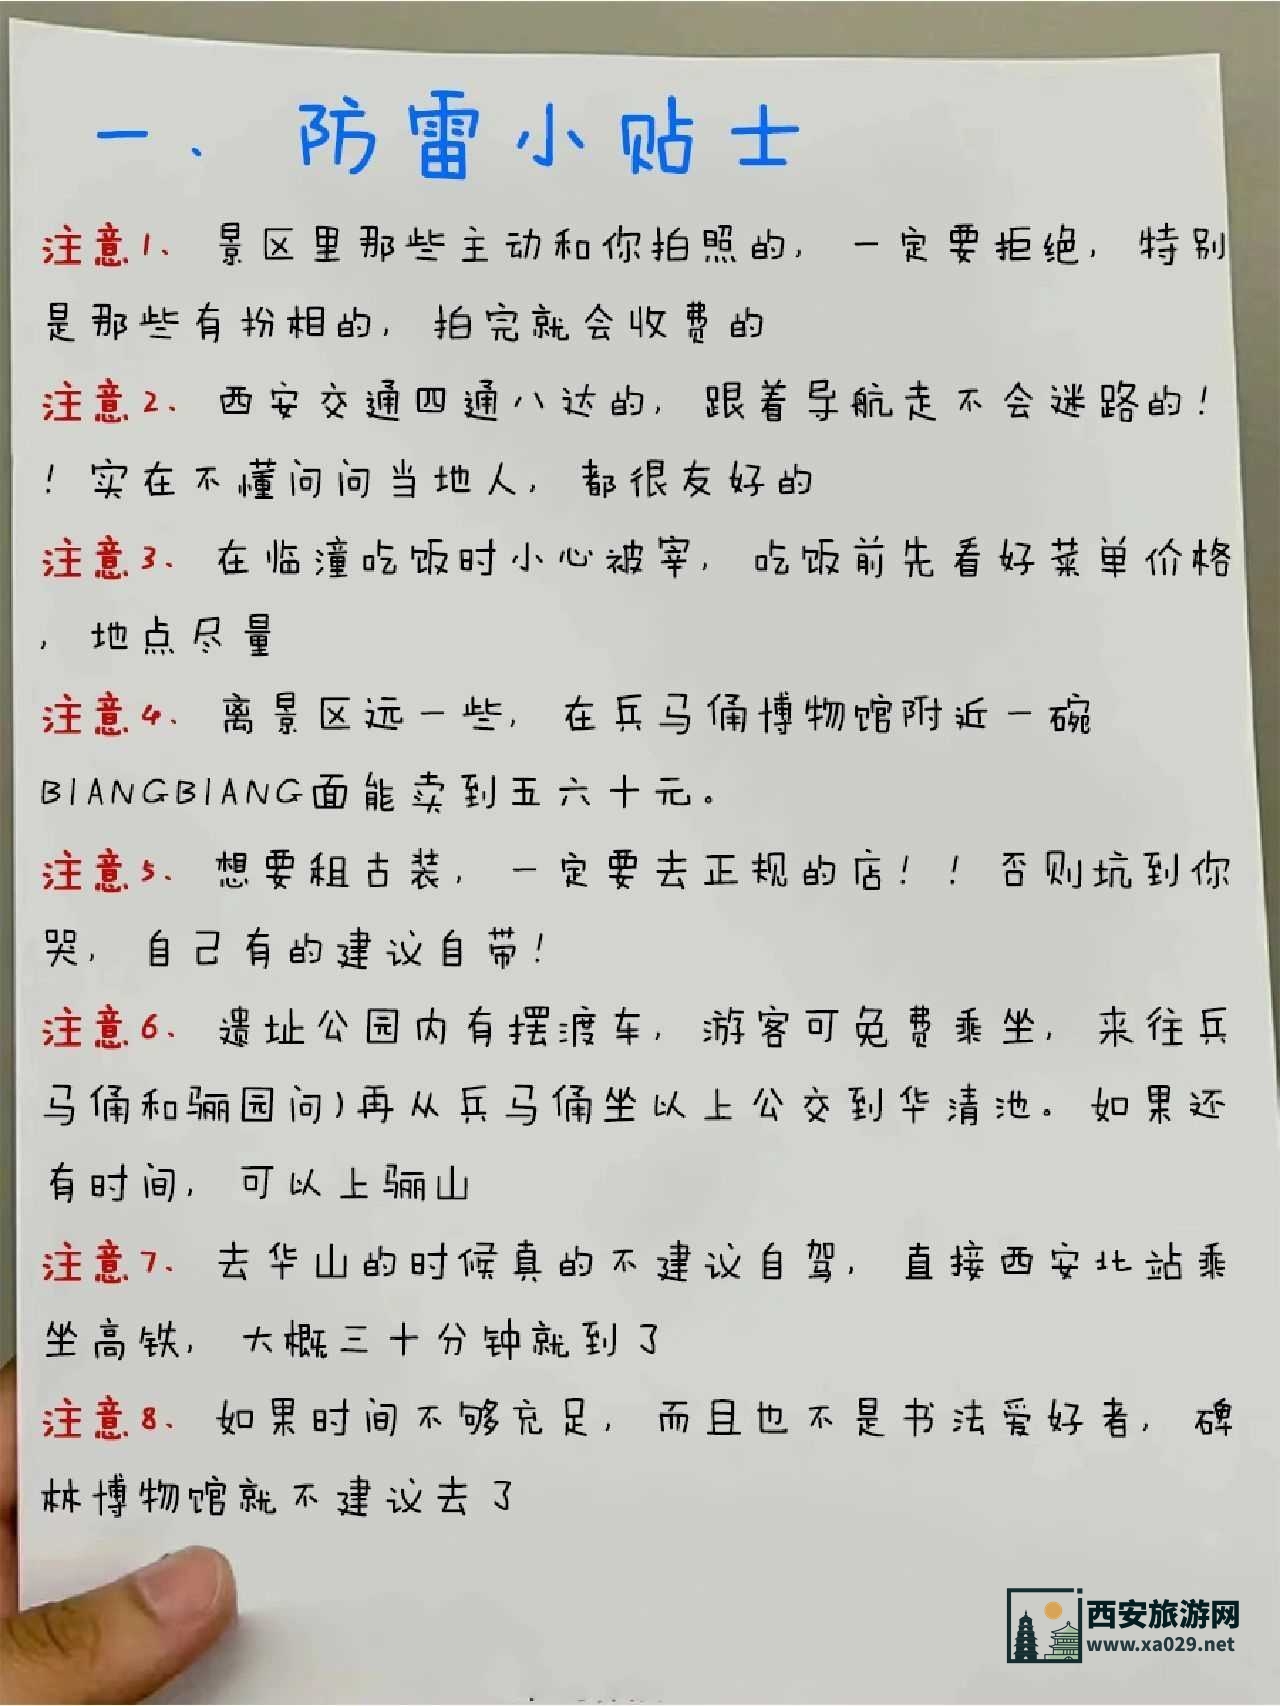 一、防雷小贴士
注意1、景区里那些主动和你拍照的，一定要拒绝，特别
是那些有扮相的，拍完就会收费的
注意2、西安交通四通八达的，跟着导航走不会迷路的！
！实在不懂问问当地人，都很友好的
注意3、在临潼吃饭时小心被宰，吃饭前先看好菜单价格
，地点尽量
注意4、离景区远一些，在兵马俑博物馆附近一碗
BIANGBIANG面能卖到五六十元。
注意5、想要租古装，一定要去正规的店！！否则坑到你
哭，自己有的建议自带！
注意6、遗址公园内有摆渡车，游客可免费乘坐，来往兵
马俑和骊园问)再从兵马俑坐以上公交到华清池。如果还
有时间，可以上骊山
注意7、去华山的时候真的不建议自驾，直接西安北站乘
坐高铁，大概三十分钟就到了
注意8、如果时间不够充足，而且也不是书法爱好者，碑
林博物馆就不建议去了
西安旅游网
www.xa029.net